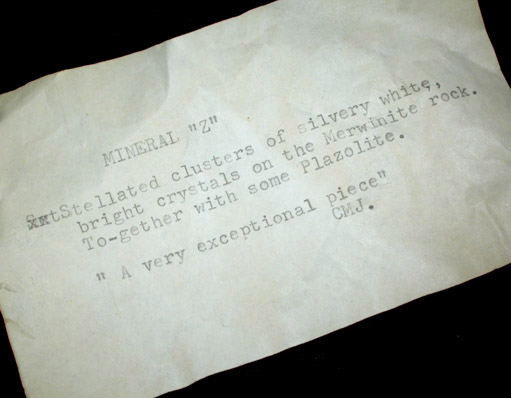 MINERAL "Z"
Stellated clusters of silvery white,
bright crystals on the Merwinite rock.
To-gether with some Plazolite.
" A very exceptional piece"
CMJ.